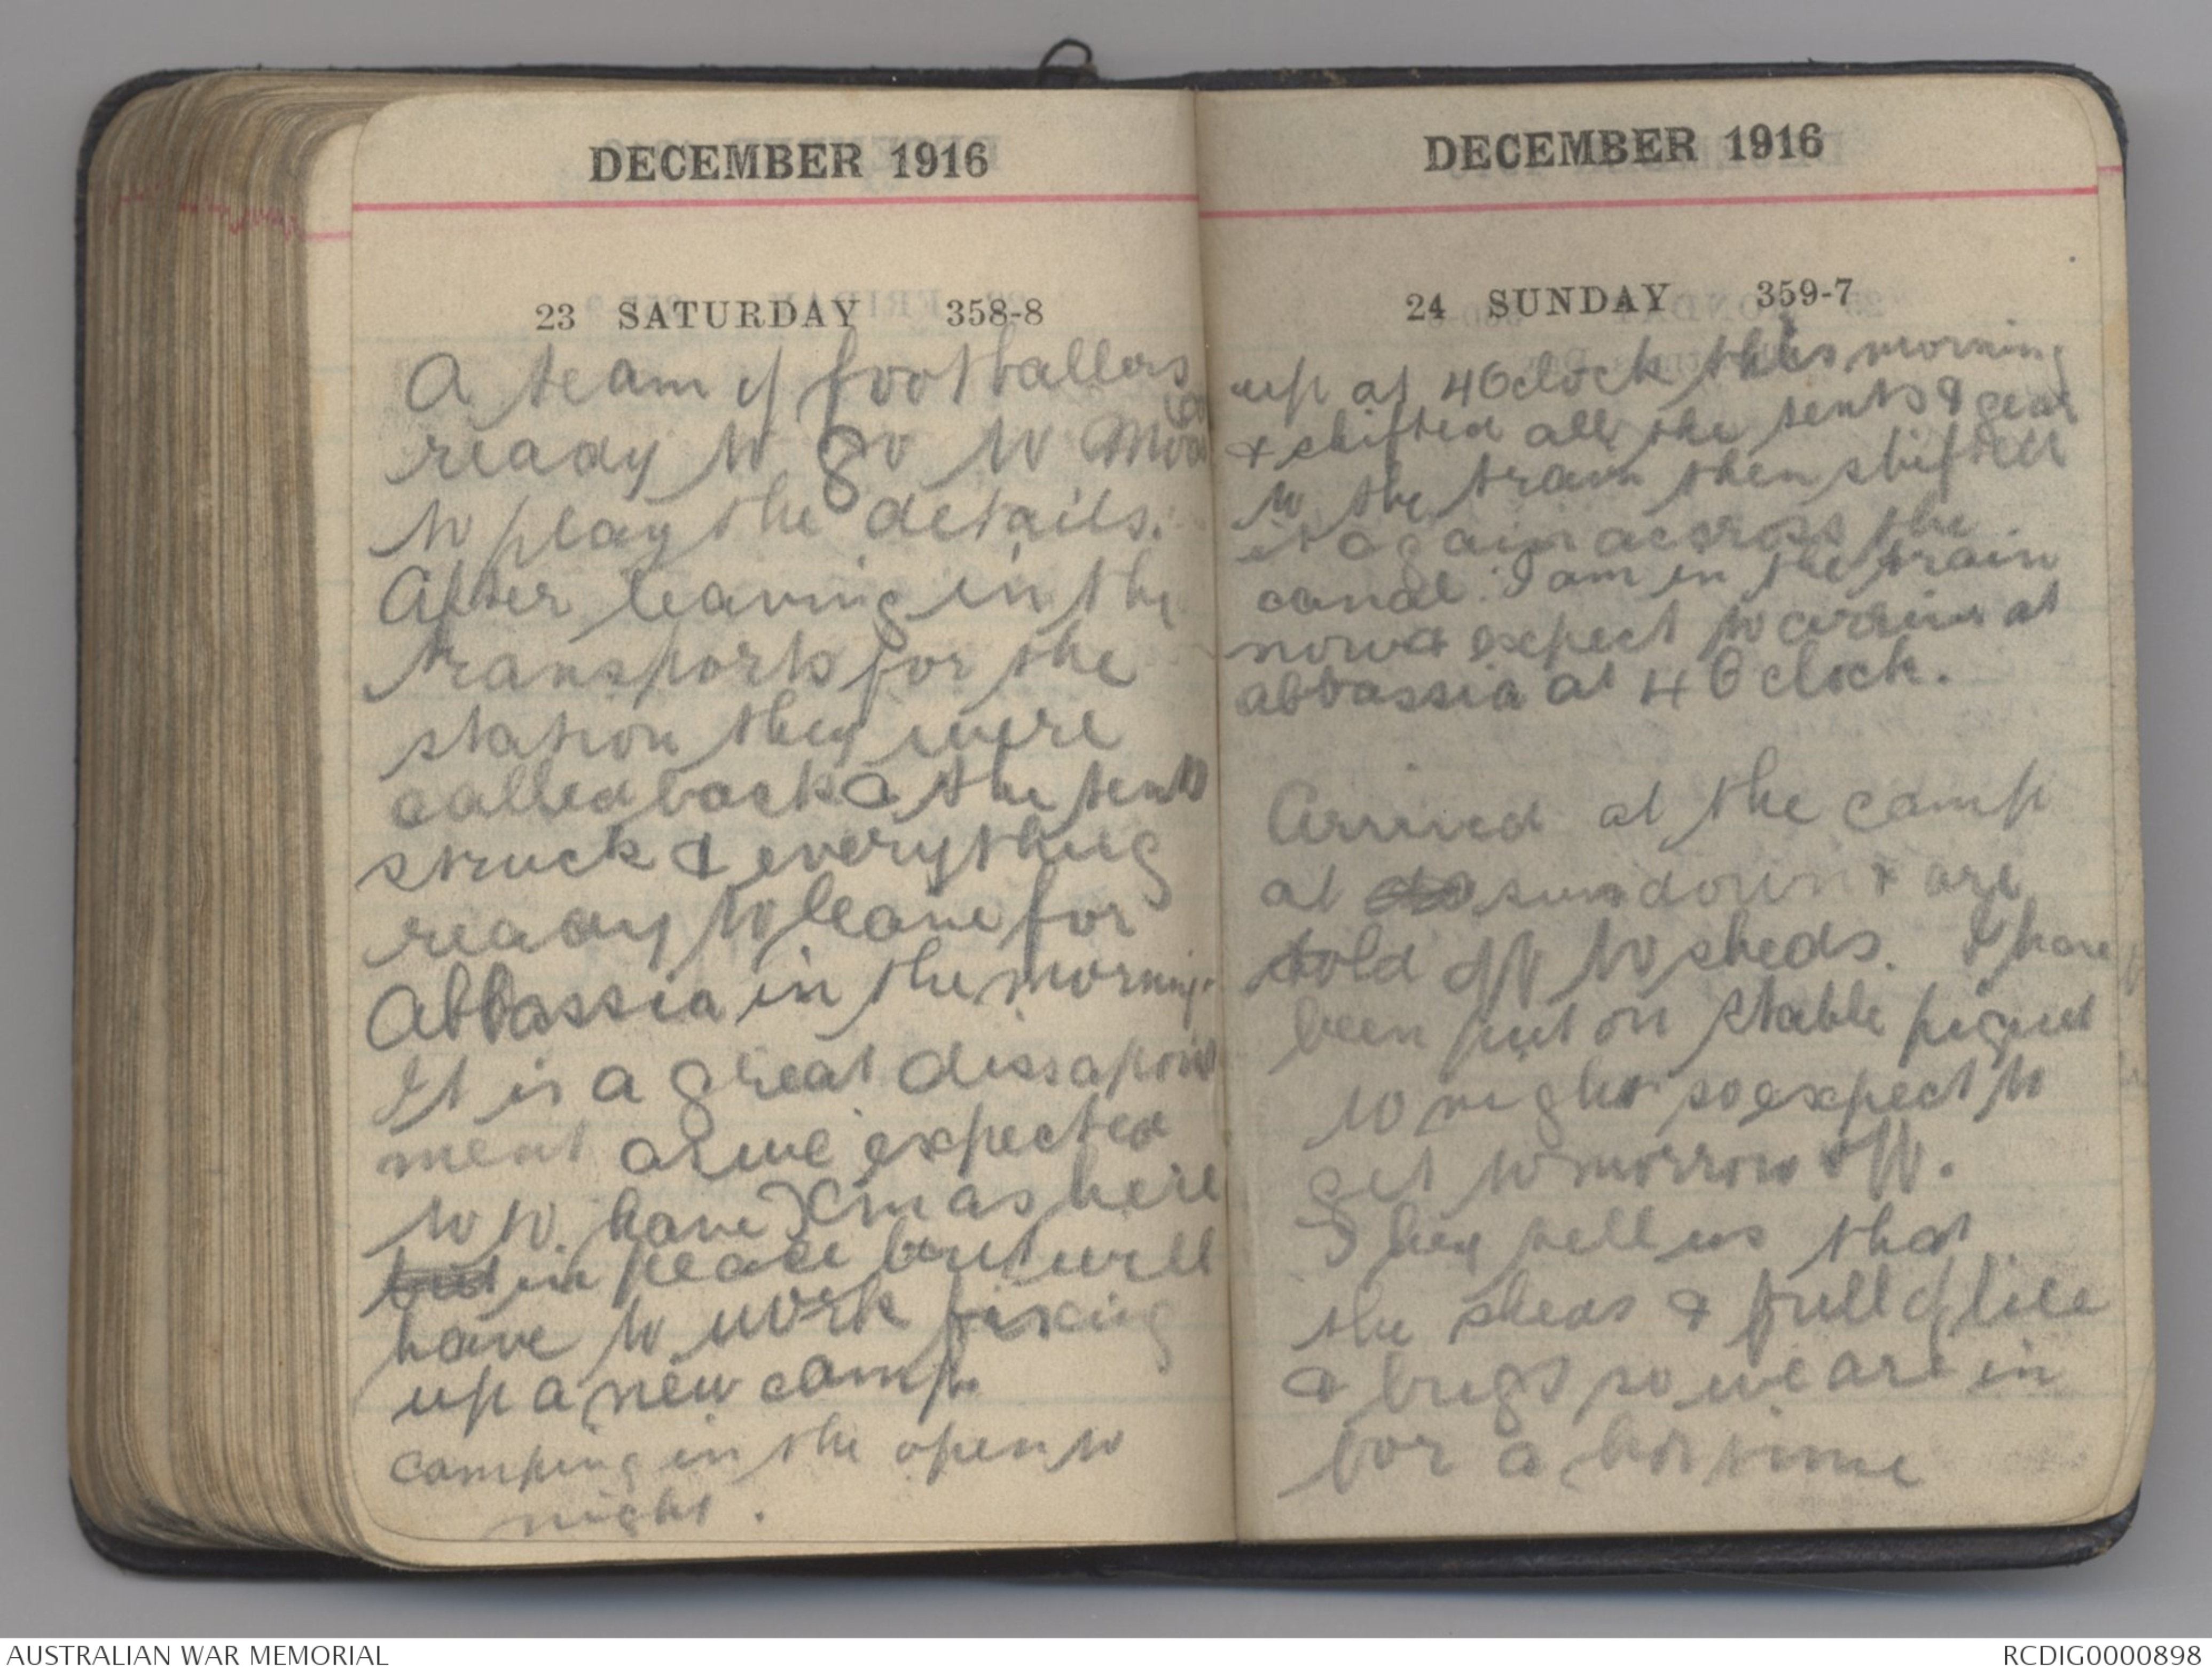 DECEMBER 1916
23 SATURDAY 358-8
A team of footballers
ready to go to Moascar
to play the details.
After leaving in the
transports for the
station they were
called back & the tents
struck & everything
ready to leave for
Abbassia in the morning.
It is a great dissapoint
ment as we expected
to to have Xmas here
but in peace but will
have to work fixing
up a new camp.
camping in the open to
night.
DECEMBER 1916
24 SUNDAY 359-7
up at 4 Oclock this morning
& shifted all the tents & gear
to the train then shifted
it again across the
canal. I am in the train
now & expect to arrive at
abbassia at 4 Oclock.
Arrived at the camp
at sundown & are
told off to sheds. I have
been put on stable piquet
to night so expect to
get tomorrow off.
They tell us that
the sheds & full of lice
& bugs so we are in
for a hot time
AUSTRALIAN WAR MEMORIAL
RCDIG0000898